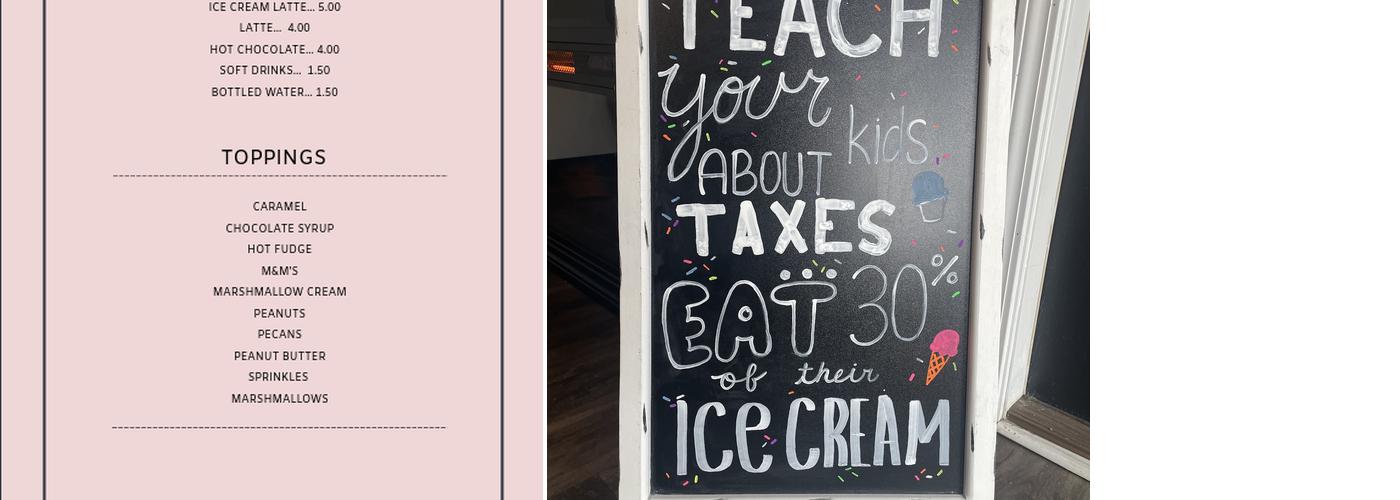 ICE CREAM LATTE... 5.00
LATTE... 4.00
HOT CHOCOLATE... 4.00
SOFT DRINKS... 1.50
BOTTLED WATER... 1.50
TOPPINGS
CARAMEL
CHOCOLATE SYRUP
HOT FUDGE
M&M'S
MARSHMALLOW CREAM
PEANUTS
PECANS
PEANUT BUTTER
SPRINKLES
MARSHMALLOWS
TEACH
your
kids
ABOUT
TAXES
EAT 30%
of their
ICE CREAM